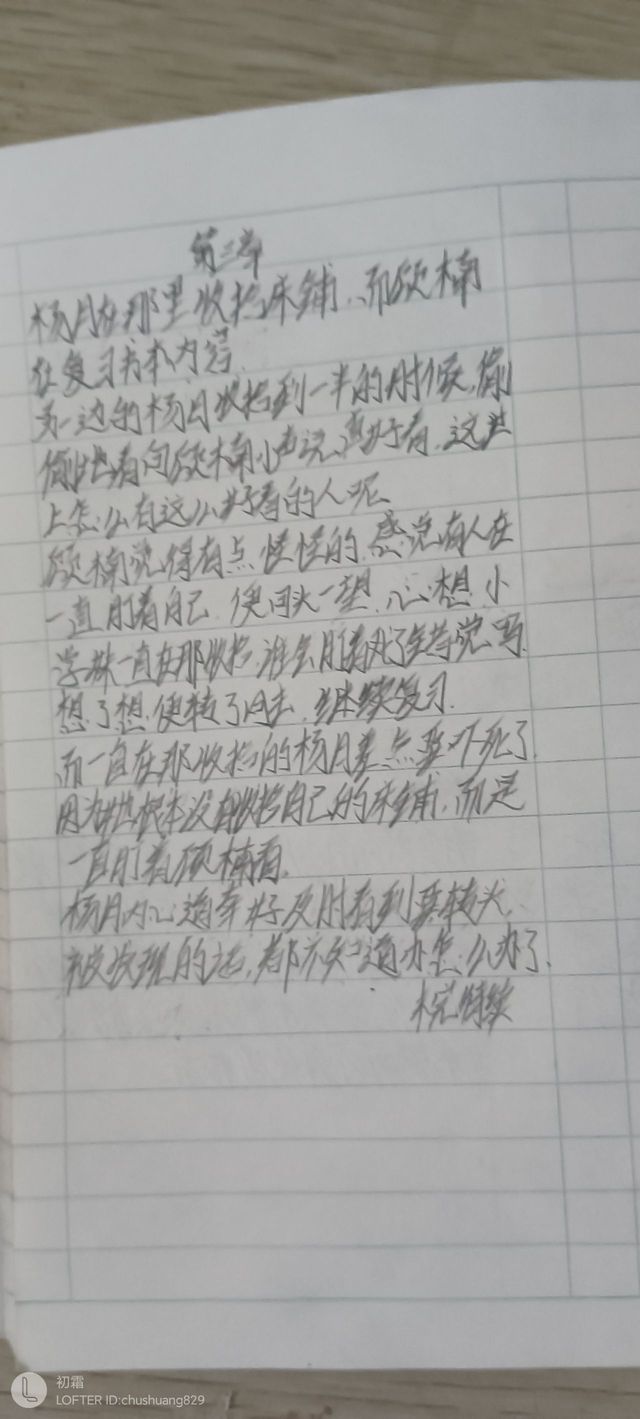 第三章
杨月在那里收拾床铺,而硕楠
在复习书本内容.
另一边的杨月收拾到一半的时候,偷
偷地看向硕楠小声说真好看,这世
上怎么有这么好看的人呢
硕楠觉得有点怪怪的,感觉有人在
一直盯着自己,便回头一望,心想,小
学妹一直在那收拾,谁会盯着我
想了想,便转了回去,继续复习.
而一直在那收拾的杨月差点要吓死了
因为她根本没有收拾自己的床铺,而是
一直盯着硕楠看.
杨月内心道幸好及时看到要转头,
被发现的话,都不知道办怎么办了.
待续
初霜
LOFTER ID:chushuang829